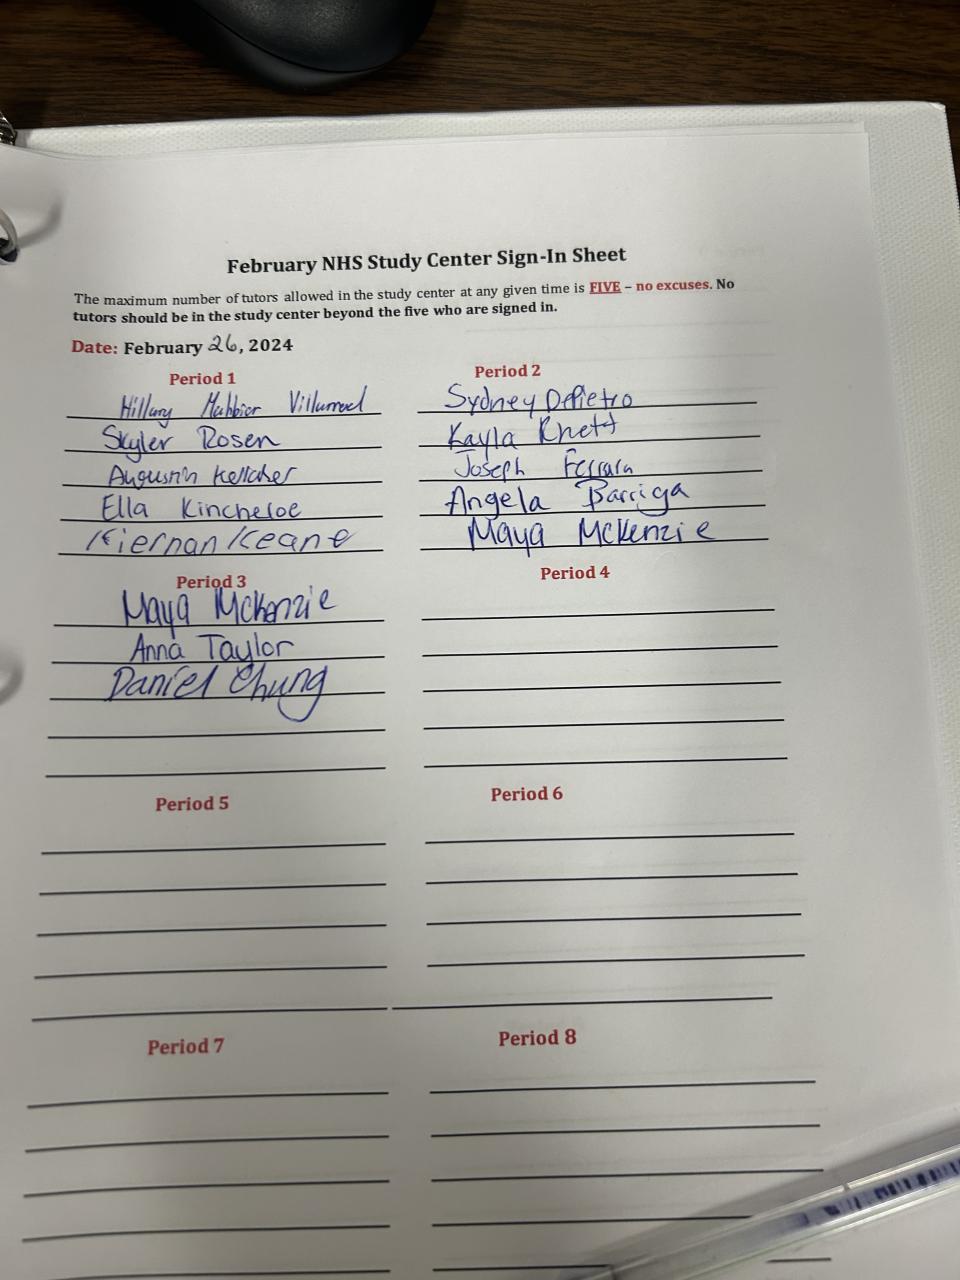 February NHS Study Center Sign-In Sheet
The maximum number of tutors allowed in the study center at any given time is FIVE – no excuses. No
tutors should be in the study center beyond the five who are signed in.
Date: February 26, 2024
Period 1
Hillary Mahbior
Skyler Rosen
Augustin Kelleher
Ella Kincheloe
Kiernan Keane
Period 2
Sydney DePietro
Kayla Rhett
Joseph Ferrara
Angela Barriga
Maya McKenzie
Period 3
Maya McKenzie
Anna Taylor
Daniel Chung
Period 4
Period 5
Period 6
Period 7
Period 8